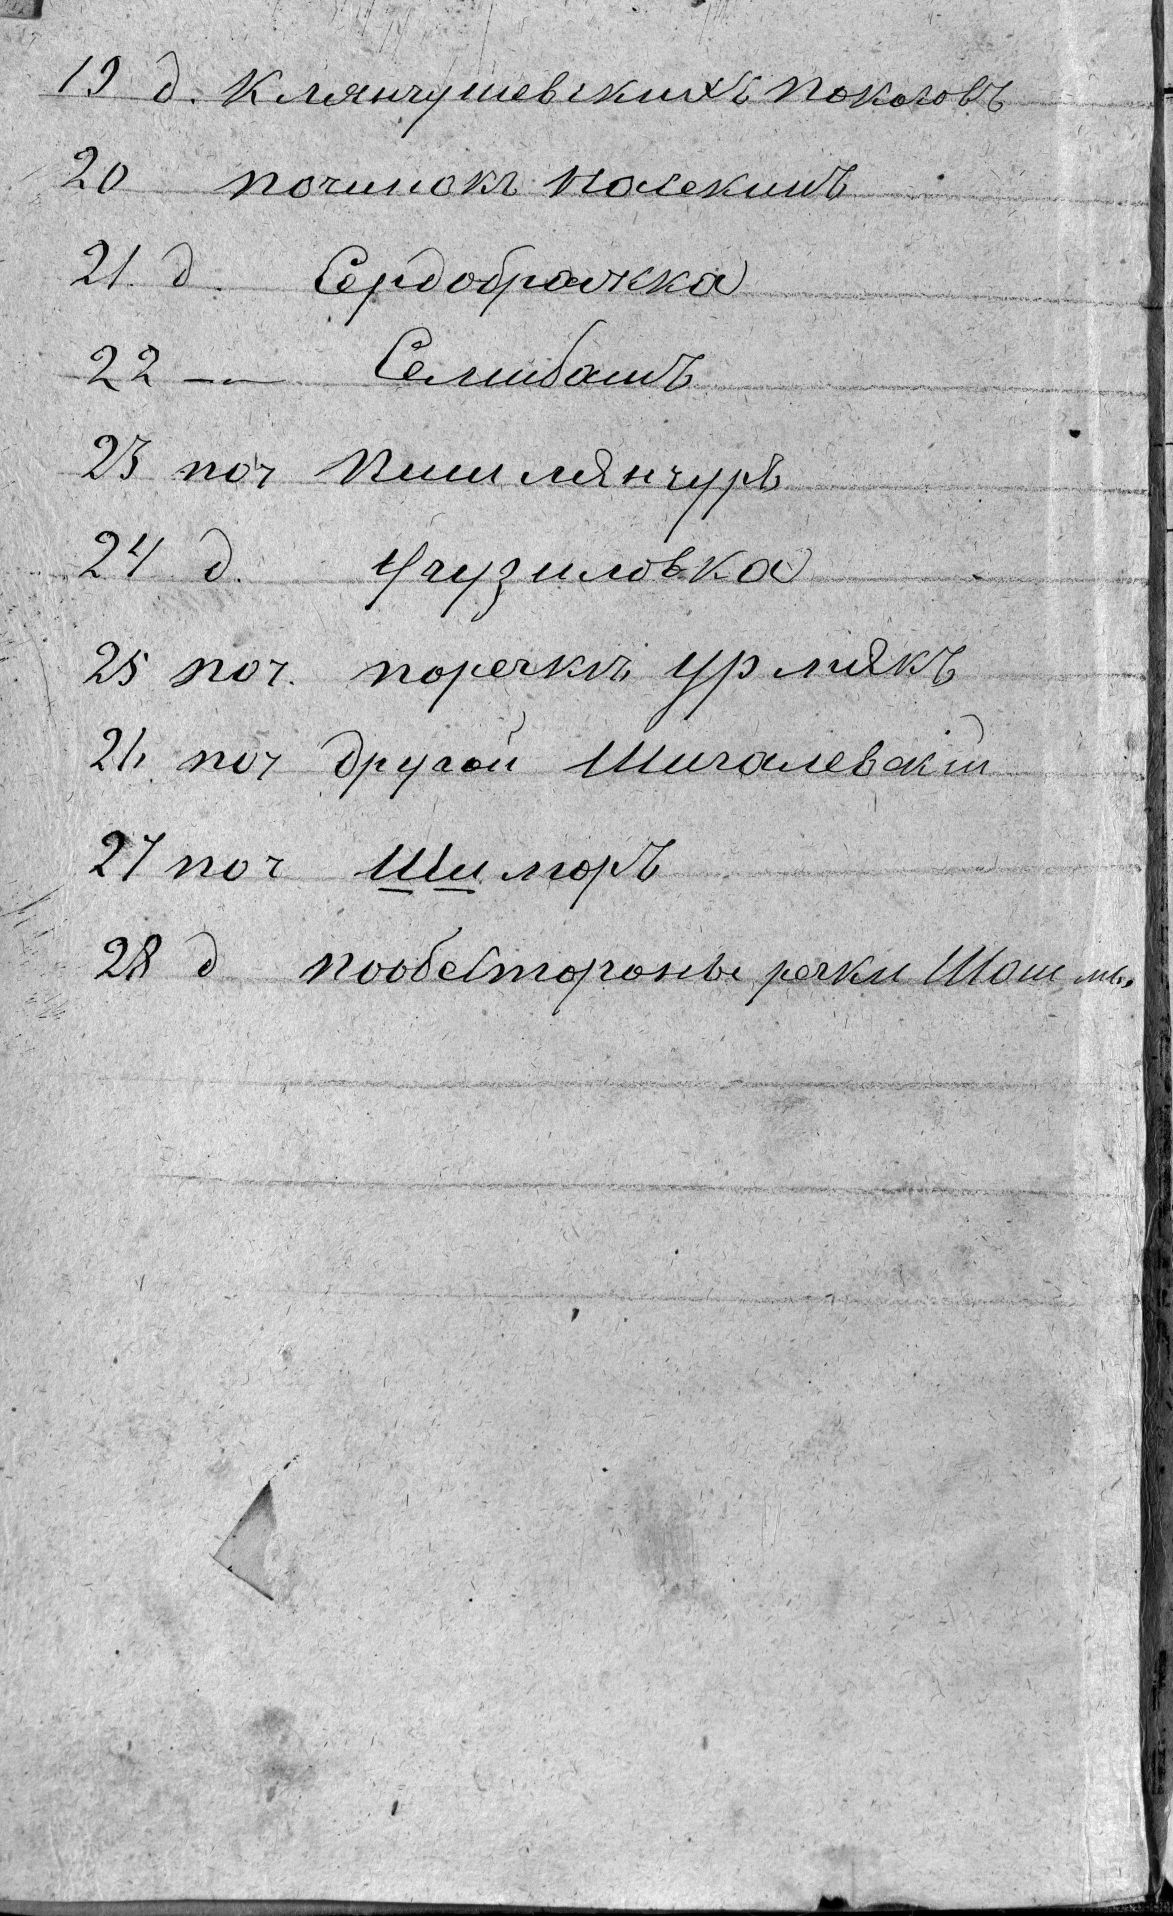 19 д. Клянчушевскихъ покосовъ
20 починокъ
21 д. Сердобряжка
22 — Селибашъ
23 поч Пишлянчуръ
24 д. Чузиловка
25 поч. поречкѣ Урлякъ
26 поч другой Шигалевскiй
27 поч Шиморъ
28 д пообесторонѣ речки Шошмы.